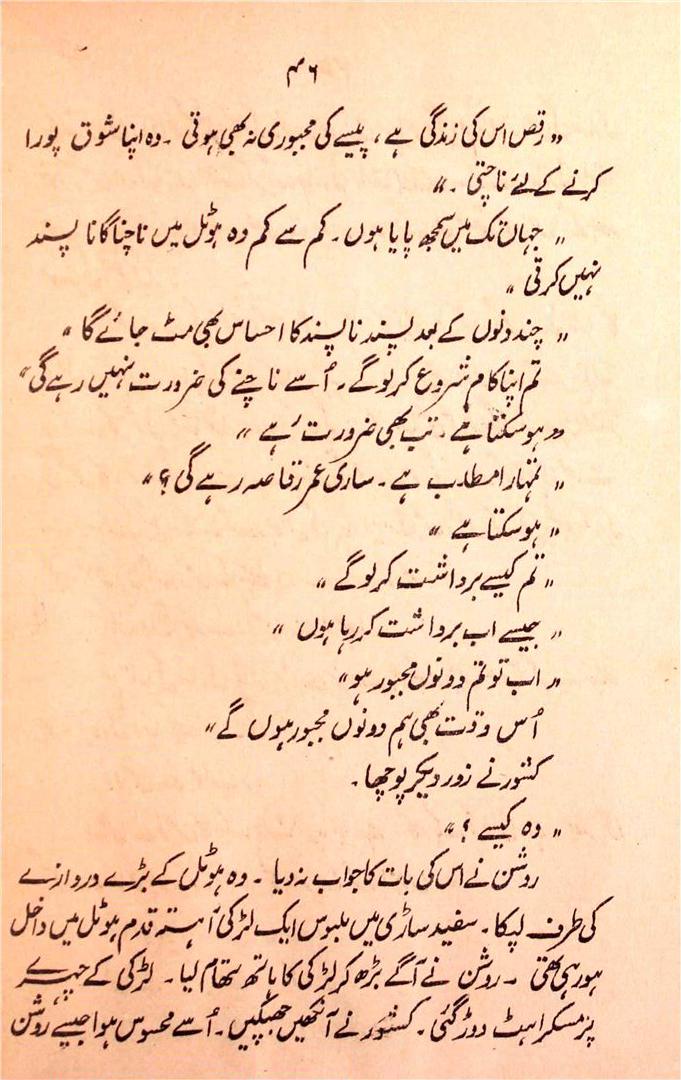 ۴۶
”رقص اس کی زندگی ہے، پیسے کی مجبوری نہ بھی ہوتی ۔ وہ اپنا شوق پورا
کرنے کے لئے ناچتی ۔“
” جہاں تک میں سمجھ پایا ہوں۔ کم سے کم وہ ہوٹل میں ناچنا گانا پسند
نہیں کرتی “
” چند دنوں کے بعد پسند ناپسند کا احساس بھی مٹ جائے گا “
تم اپنا کام شروع کر لوگے ۔ اُسے ناچنے کی ضرورت نہیں رہے گی“
”ہو سکتا ہے ۔ تب بھی ضرورت رہے “
” تمہارا مطلب ہے ۔ ساری عمر رقاصہ رہے گی؟“
” ہو سکتا ہے “
” تم کیسے برداشت کر لوگے “
” جیسے اب برداشت کر رہا ہوں “
” اب تو تم دونوں مجبور ہو“
اُس وقت بھی ہم دونوں مجبور ہوں گے“
کشور نے زور دیکر پوچھا۔
” وہ کیسے ؟“
روشن نے اس کی بات کا جواب نہ دیا ۔ وہ ہوٹل کے بڑے دروازے
کی طرف لپکا۔ سفید ساڑی میں ملبوس ایک لڑکی آہستہ قدم ہوٹل میں داخل
ہو رہی تھی ۔ روشن نے آگے بڑھ کر لڑکی کا ہاتھ تھام لیا۔ لڑکی کے چہرے
پر مسکراہٹ دوڑ گئی ۔ کشور نے آنکھیں جھپکیں۔ اُسے محسوس ہوا جیسے روشن